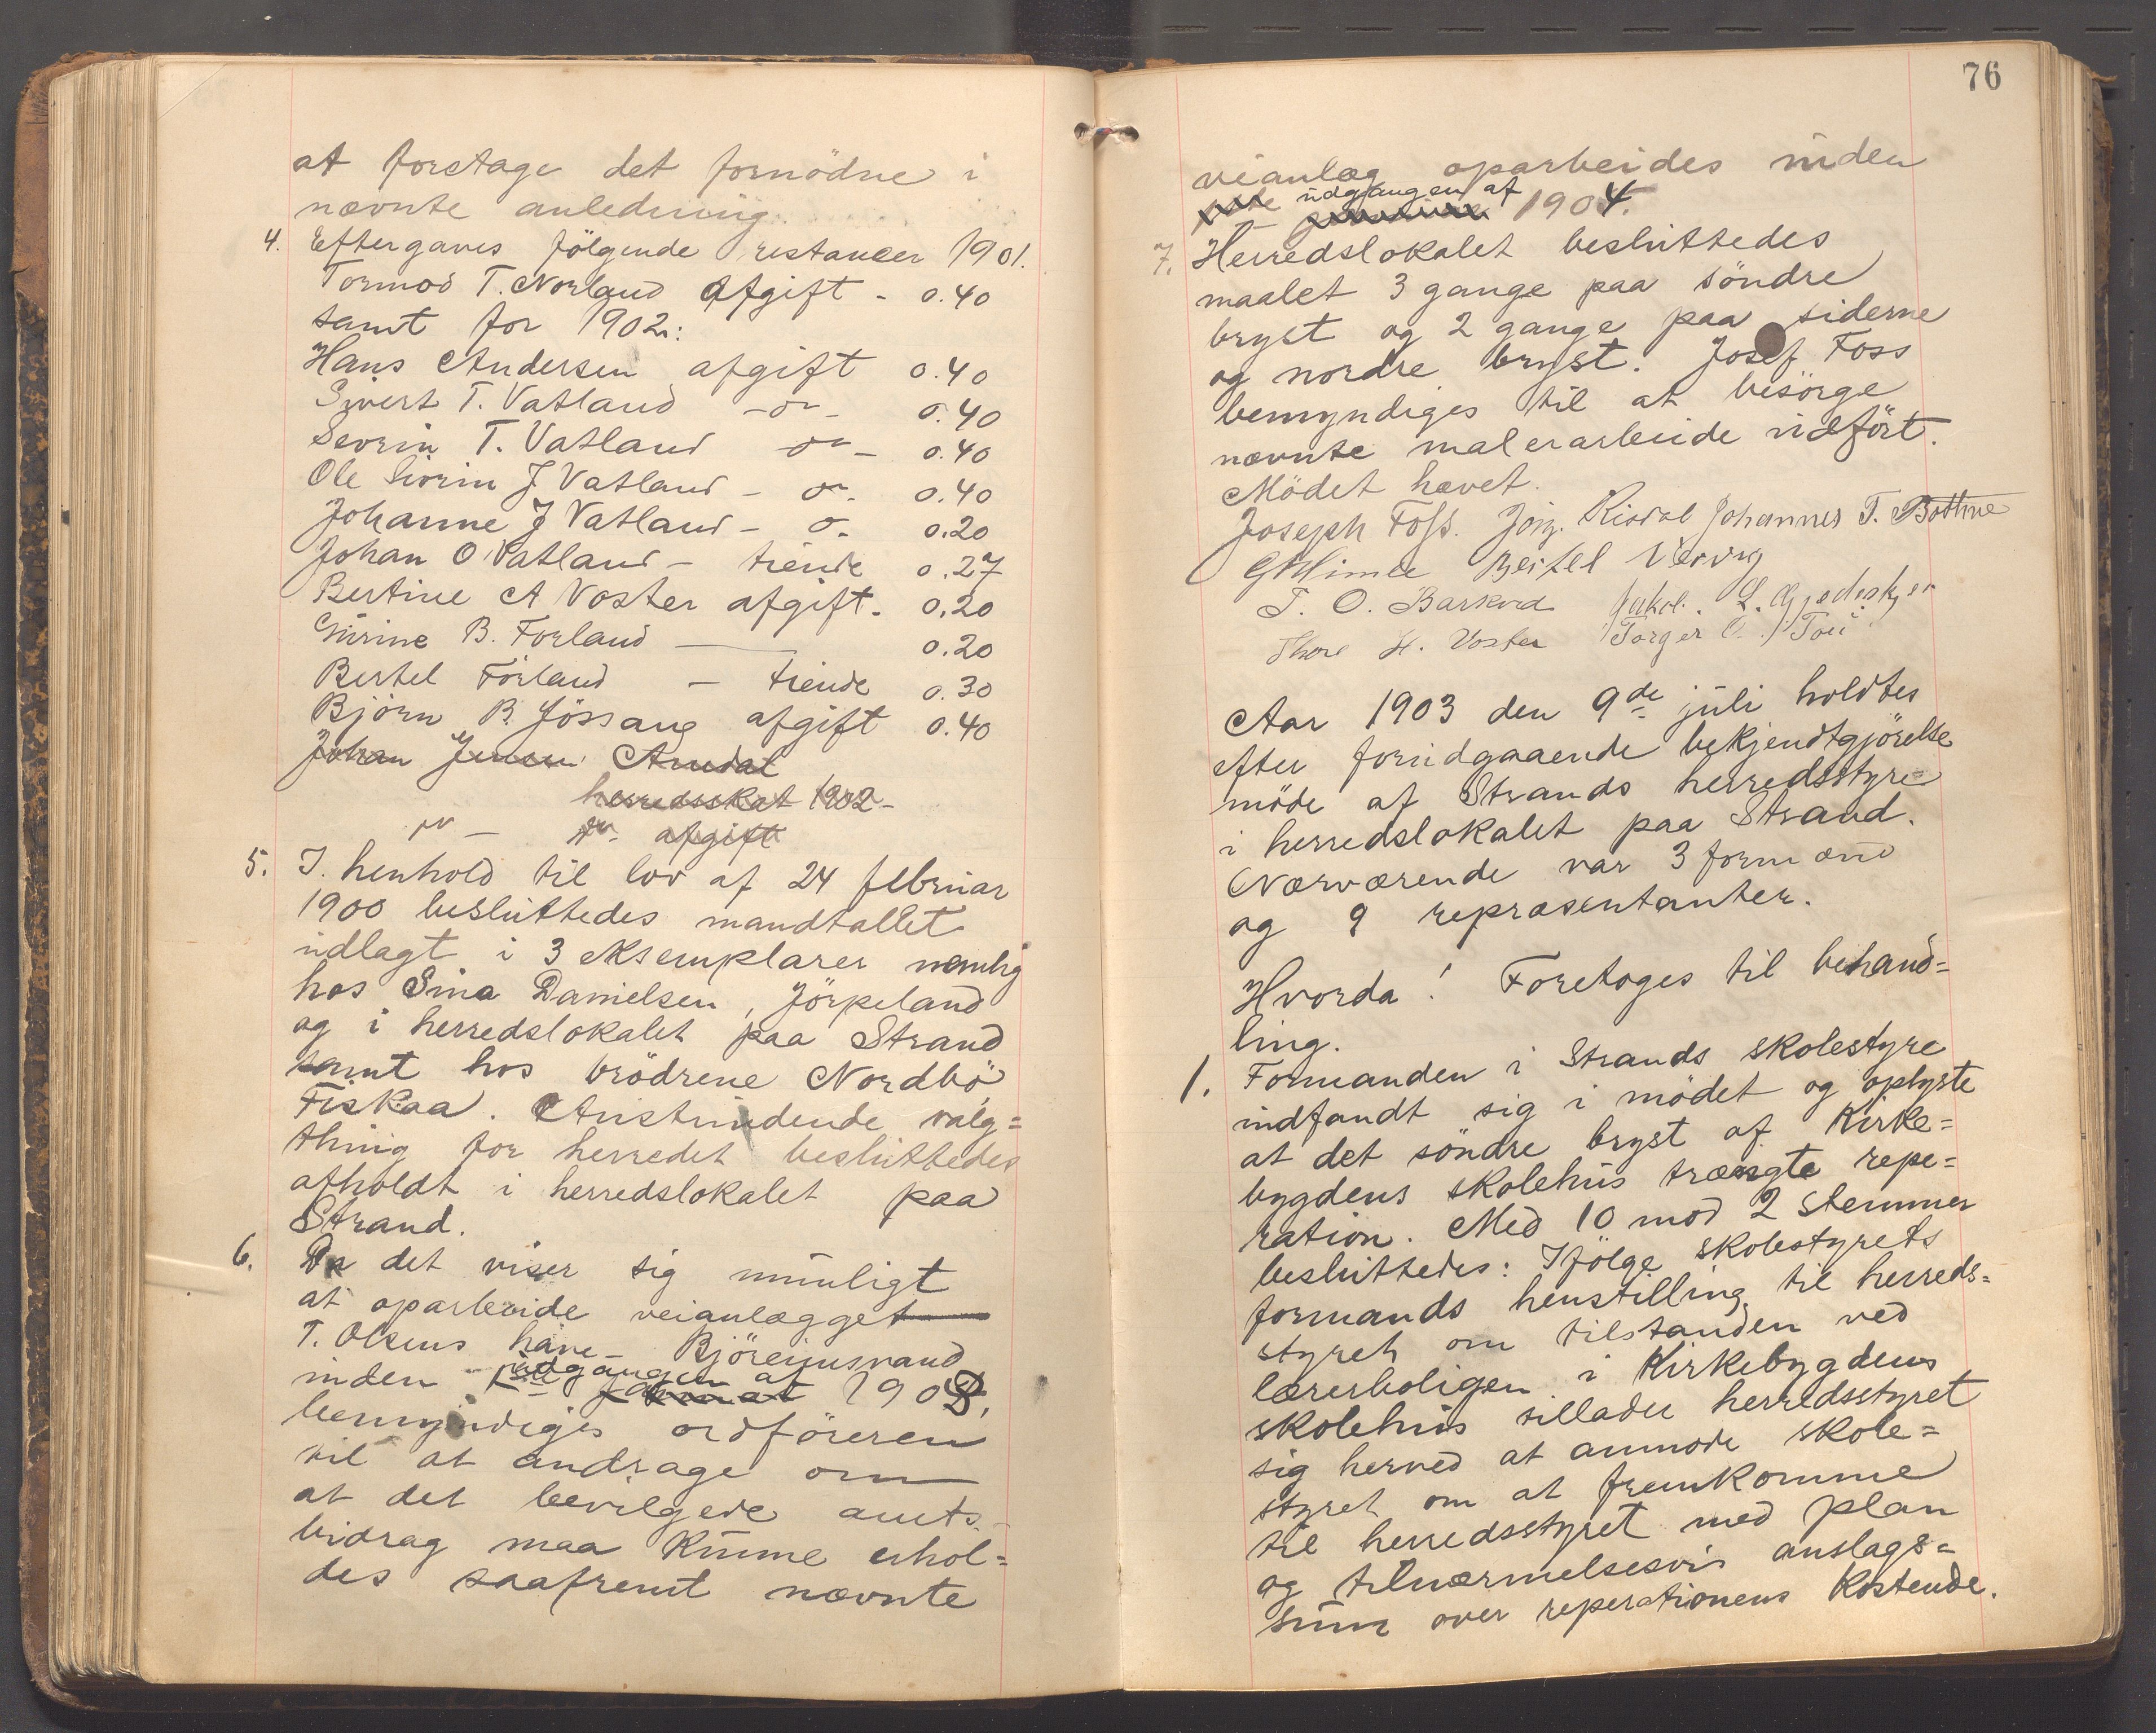 at foretage det fornödne i
nævnte anledning.
4. Eftergaves fölgende restancer 1901.
Tormod T. Norland Afgift - 0.40
samt for 1902:
Hans Andersen afgift 0.40
Sivert T. Vatland -"- 0.40
Sevrin T. Vatland -"- 0.40
Ole Sivrin J Vatland -"- 0.40
Johanne J Vatland -"- 0.20
Johan O Vatland - tiende 0.27
Bertine A Voster afgift - 0.20
Gurine B. Forland — 0.20
Bertel Förland - tiende 0.30
Björn B. Jössang afgift 0.40
Johan Jensen Amdal
herredsskat 1902 -
"- "- afgift
5. I henhold til lov af 24 februar
1900 besluttedes mandtallet
udlagt i 3 eksemplarer nemlig
hos Sina Danielsen, Jörpeland
og i herredslokalet paa Strand
samt hos brödrene Nordbö
Fiskaa. Anstundende valg=
thing for herredet besluttedes
afholdt i herredslokalet paa
Strand.
6. Da det viser sig umuligt
at oparbeide veianlægget
T. Olsens have - Björeimsvand
inden udgangen af 1903,
bemyndiges ordföreren
til at andrage om
at det bevilgede amts-
bidrag maa kunne erhol=
des saafremt nævnte
76
veianlæg oparbeides inden
udgangen af 1904.
7. Herredslokalet besluttedes
maalet 3 gange paa söndre
bryst og 2 gange paa siderne
og nordre bryst. Josef Foss
bemyndiges til at besörge
nævnte malerarbeide udfört.
Mödet hævet.
Joseph Foss. Jörg. Risdal Johannes T. Bothne
G Himle Bertel Nervig
T. O. Barkved Jakob. L. Gjedeskjer
Thore H. Voster Torger O. Tou
Aar 1903 den 9de juli holdtes
efter forudgaaende bekjendtgjörelse
möde af Strands herredsstyre
i herredslokalet paa Strand.
Nærværende var 3 formænd
og 9 repræsentanter.
Hvorda! Foretoges til behand=
ling.
1. Formanden i Strands skolestyre
indfandt sig i mödet og oplyste
at det söndre bryst af Kirke=
bygdens skolehus trængte repe=
ration. Med 10 mod 2 stemmer
besluttedes: Ifölge skolestyrets
formands henstilling til herreds=
styret om tilstanden ved
lærerboligen i Kirkebygdens
skolehus tillader herredsstyret
sig herved at anmode skole=
styret om at fremkomme
til herredsstyret med plan
og tilnærmelsesvis anslags=
sum over reperationens kostende.